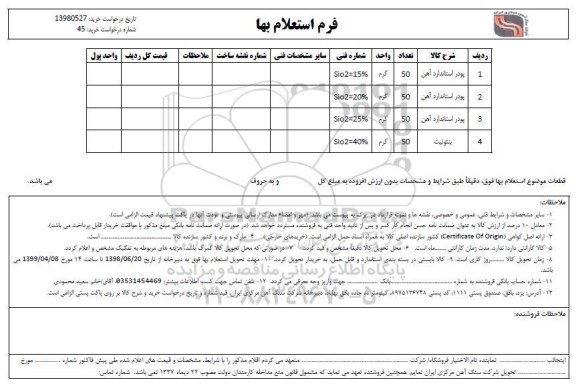 فرم استعلام بها
تاریخ درخواست خرید: 13980527
شماره درخواست خرید: 45
ردیف شرح کالا تعداد واحد شماره فنی سایر مشخصات فنی شماره نقشه ساخت ملاحظات قیمت کل ردیف واحد پول
1 پودر استاندارد آهن 50 گرم Sio2=15%
2 پودر استاندارد آهن 50 گرم Sio2=20%
3 پودر استاندارد آهن 50 گرم Sio2=25%
4 بنتونیت 50 گرم Sio2=40%
قطعات موضوع استعلام بها فوق، دقیقاً طبق شرایط و مشخصات بدون ارزش افزوده به مبلغ کل و به حروف می باشد.
ملاحظات:
۱- سایر مشخصات و شرایط فنی، عمومی و خصوصی، نقشه ها و نمونه قرارداد در برگ به پیوست می باشد. (مهر و امضاء مدارک ارسالی پیوستی و عودت آنها در پاکت پیشنهاد قیمت الزامی است).
۲- معادل ۱۰ درصد از ارزش کالا به عنوان ضمانت نامه حسن انجام کار کسر و پس از تائید واحد فنی به فروشنده مسترد خواهد شد. (در صورت ارائه ضمانت نامه بانکی مبلغ مذکور با موافقت خریدار قابل پرداخت می باشد).
۳- ارائه اصل گواهی (Certificate Of Origin) کشور سازنده اصلی کالا به همراه اسناد حمل الزامی است. (خریدهای خارجی). ۴- مارک و برند و کشور سازنده کالا
۵- کالا گارانتی دارد/ ندارد مدت زمان گارانتی ماه است. ۶- محل تحویل کالا دقیقا مشخص و قید گردد. ۷- در صورتی که محل تحویل کالا گمرک باشد، هزینه های مربوطه به تفکیک مشخص و اعلام گردد.
۸- زمان تحویل کالا روز کاری است. ۹- کالا بایستی در بسته بندی استاندارد و قابل حمل به خریدار تحویل گردد. ۱۰- مهلت تحویل استعلام بها فوق به دبیرخانه از تاریخ 1398/06/20 تا ساعت ۱۴ مورخ 1399/04/08 می باشد.
۱۱- شماره حساب بانکی فروشنده به شماره بانک جهت واریز وجه معرفی می گردد. ۱۲- تلفن تماس جهت کسب اطلاعات بیشتر: 03531454469 آقای/خانم سعید محمودی
ملاحظات فروشنده:
اینجانب نماینده تام الاختیار فروشگاه/ شرکت متعهد می گردم اقلام مذکور را با شرایط، مشخصات و قیمت های اعلام شده طی پیش فاکتور شماره مورخ
تحویل شرکت سنگ آهن مرکزی ایران نمایم. همچنین فروشنده تعهد می نماید که مشمول قانون منع مداخله کارمندان دولت مصوب ۲۲ دیماه ۱۳۳۷ نمی باشد. شماره تماس: